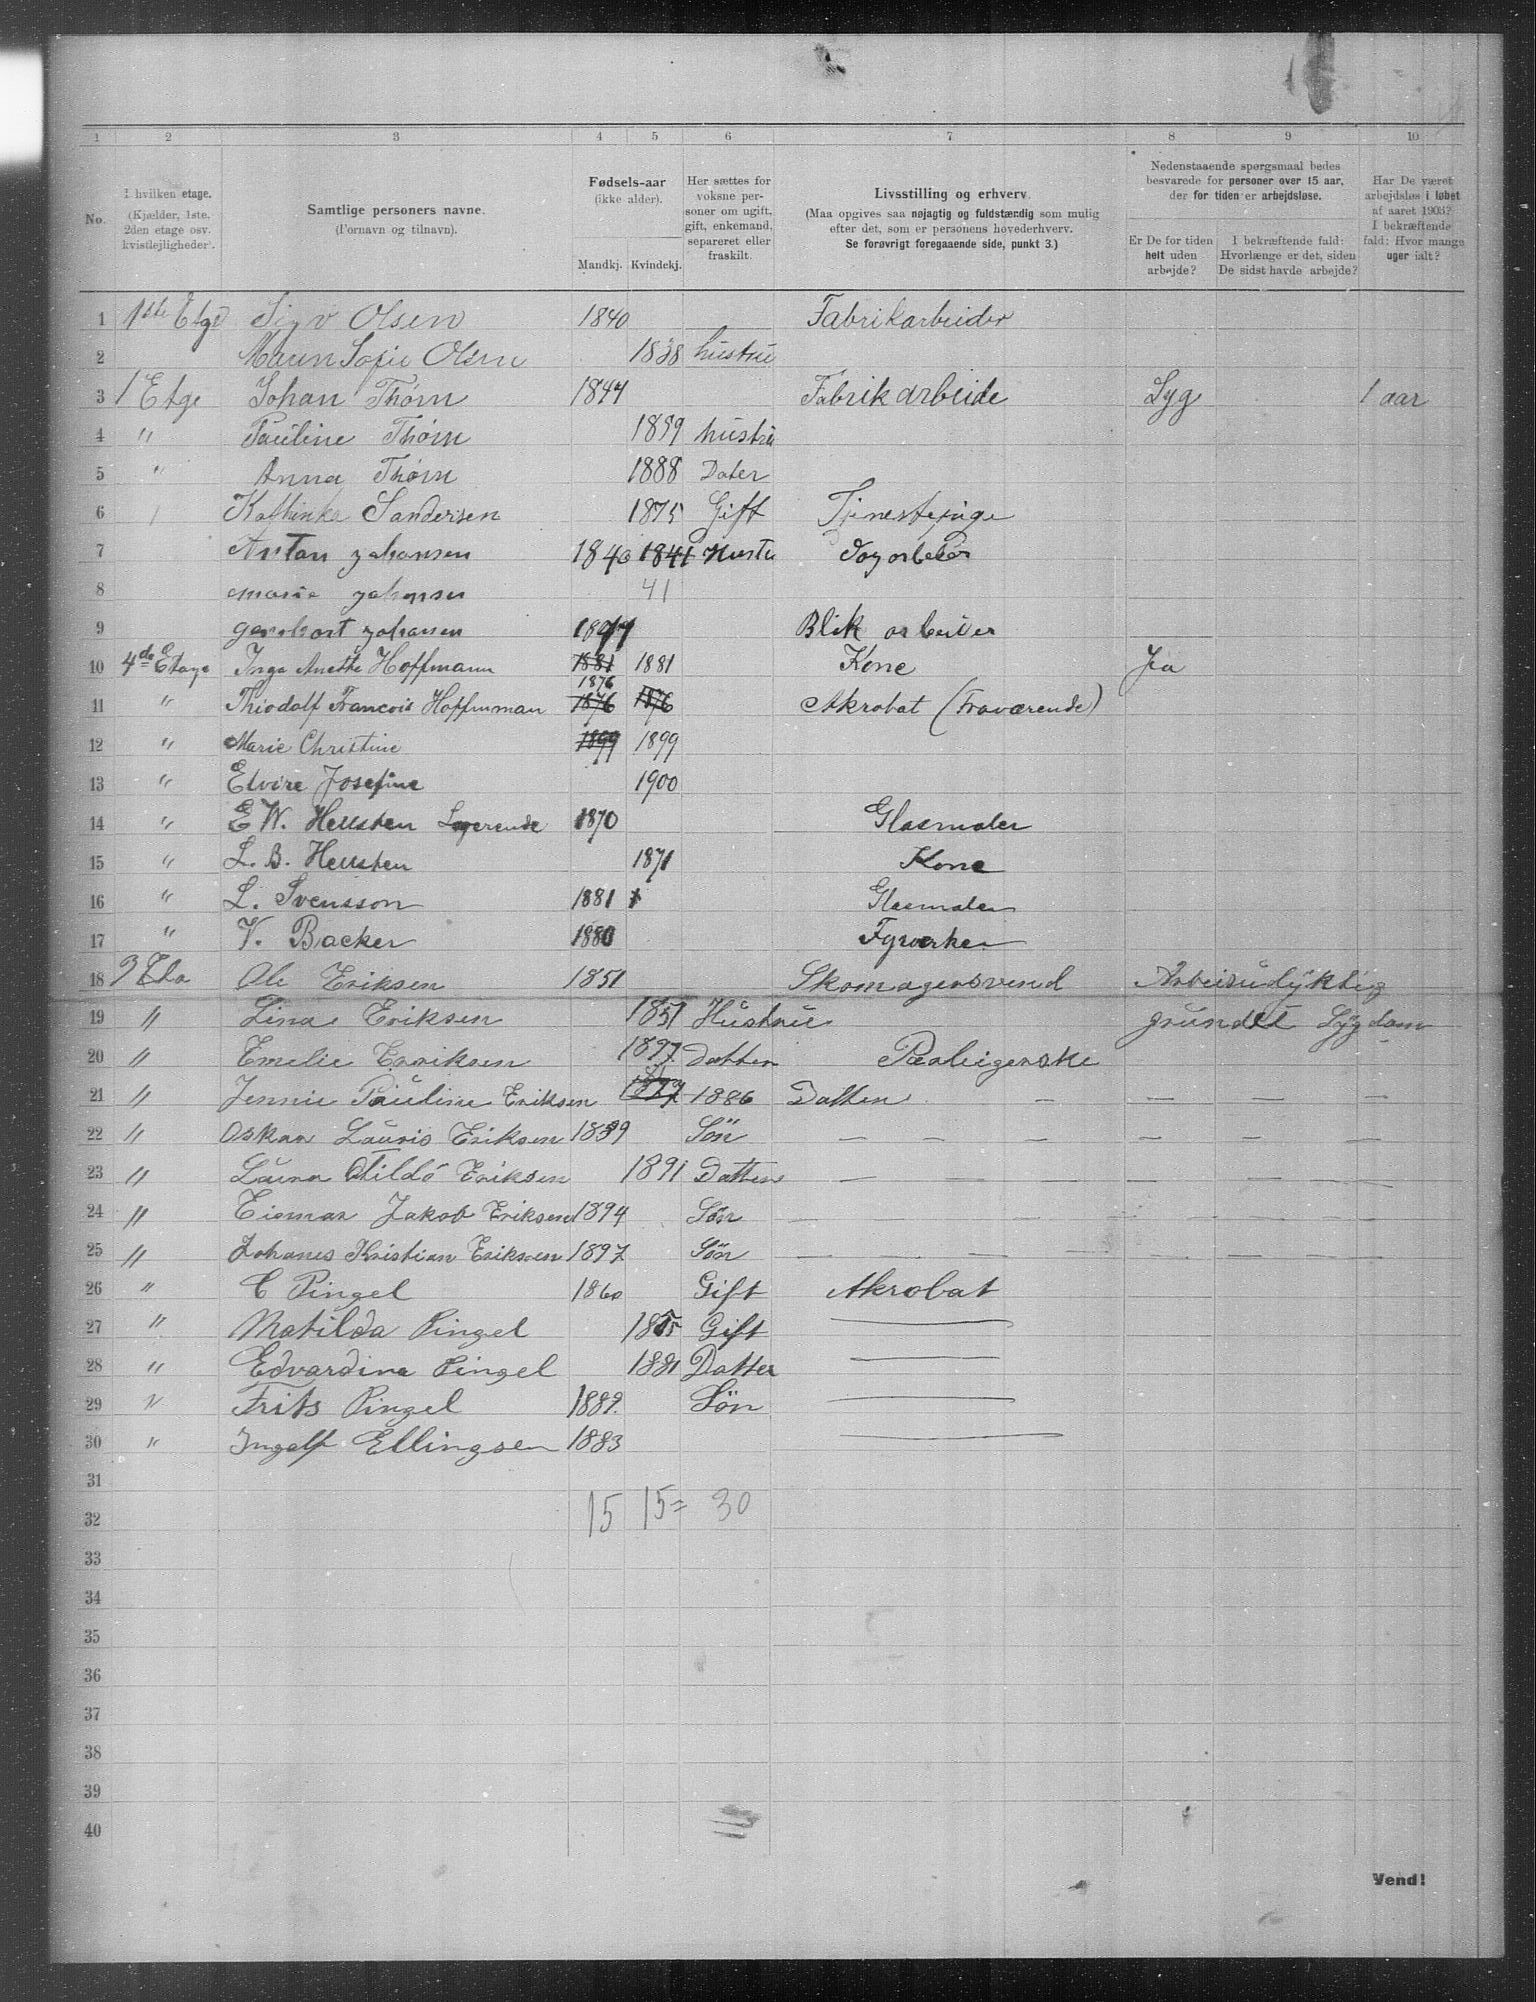 1 2 3 4 5 6 7 8 9 10
No.
I hvilken etage.
(Kjælder, 1ste.
2den etage osv.
kvistlejligheder).
Samtlige personers navne.
(Fornavn og tilnavn).
Fødsels-aar
(ikke alder).
Mandkj. Kvindekj.
Her sættes for
voksne per-
soner om ugift,
gift, enkemand,
separeret eller
fraskilt.
Livsstilling og erhverv.
(Maa opgives saa nøjagtig og fuldstændig som mulig
efter det, som er personens hovederhverv.
Se forøvrigt foregaaende side, punkt 3.)
Nedenstaaende spørgsmaal bedes
besvarede for personer over 15 aar,
der for tiden er arbejdsløse.
Er De for tiden
helt uden
arbejde?
I bekræftende fald:
Hvorlænge er det, siden
De sidst havde arbejde?
Har De været
arbejdsløs i løbet
af aaret 1903?
I bekræftende
fald: Hvor mange
uger ialt?
1 1ste Etge Sigv Olsen 1840 Fabrikarbeider
2 Maren Sofie Olsen 1838 hustru
3 1 Etge Johan Thørn 1844 Fabrikarbeide Syg 1 aar
4 " Pauline Thørn 1859 hustru
5 " Anna Thørn 1888 Dater
6 Kathinka Sandersen 1875 Gift
7 Anton Johansen 1840 1841 Hustu
8 marie Johansen 41
9 Johansen Blik arbeider
10 4de Etage Inga Anette Hoffmann 1881 1881 Kone Ja
11 " Thiodolf Francois Hoffmman 1876 1876 1876 Akrobat (Fraværende)
12 " Marie Christine 1899 1899
13 " Elvire Josefine 1900
14 " E W. Hellsten Logerende 1870 Glasmaler
15 " L. B. Hellsten 1871 Kone
16 " L. Svensson 1881 Glasmaler
17 " V. Backer 1880 Fyrverker
18 3 Eta Ole Eriksen 1851 Skomagersvend Arbeisudyktig
19 " Lina Eriksen 1851 Hustrue grundet Sygdom
20 " Emelie Eriksen 1897 Datter
21 " Jennie Pauline Eriksen 1886 Datten — — — —
22 " Oskar Lauris Eriksen 1889 Sön — — — — —
23 " Laura Otilde Eriksen 1891 Datten — — — — —
24 " Eismar Jakob Eriksen 1894 Sön — — — — —
25 " Johanes Kristian Eriksen 1897 Sön — — — — —
26 " C Pingel 1860 Gift Akrobat
27 " Matilda Pingel Gift —
28 " Edvardine Pingel 1881 Datter —
29 " Frits Pingel 1889. Sön —
30 " Ingolf Ellingsen 1883 —
31
32 15 15 = 30
33
34
35
36
37
38
39
40
Vend!